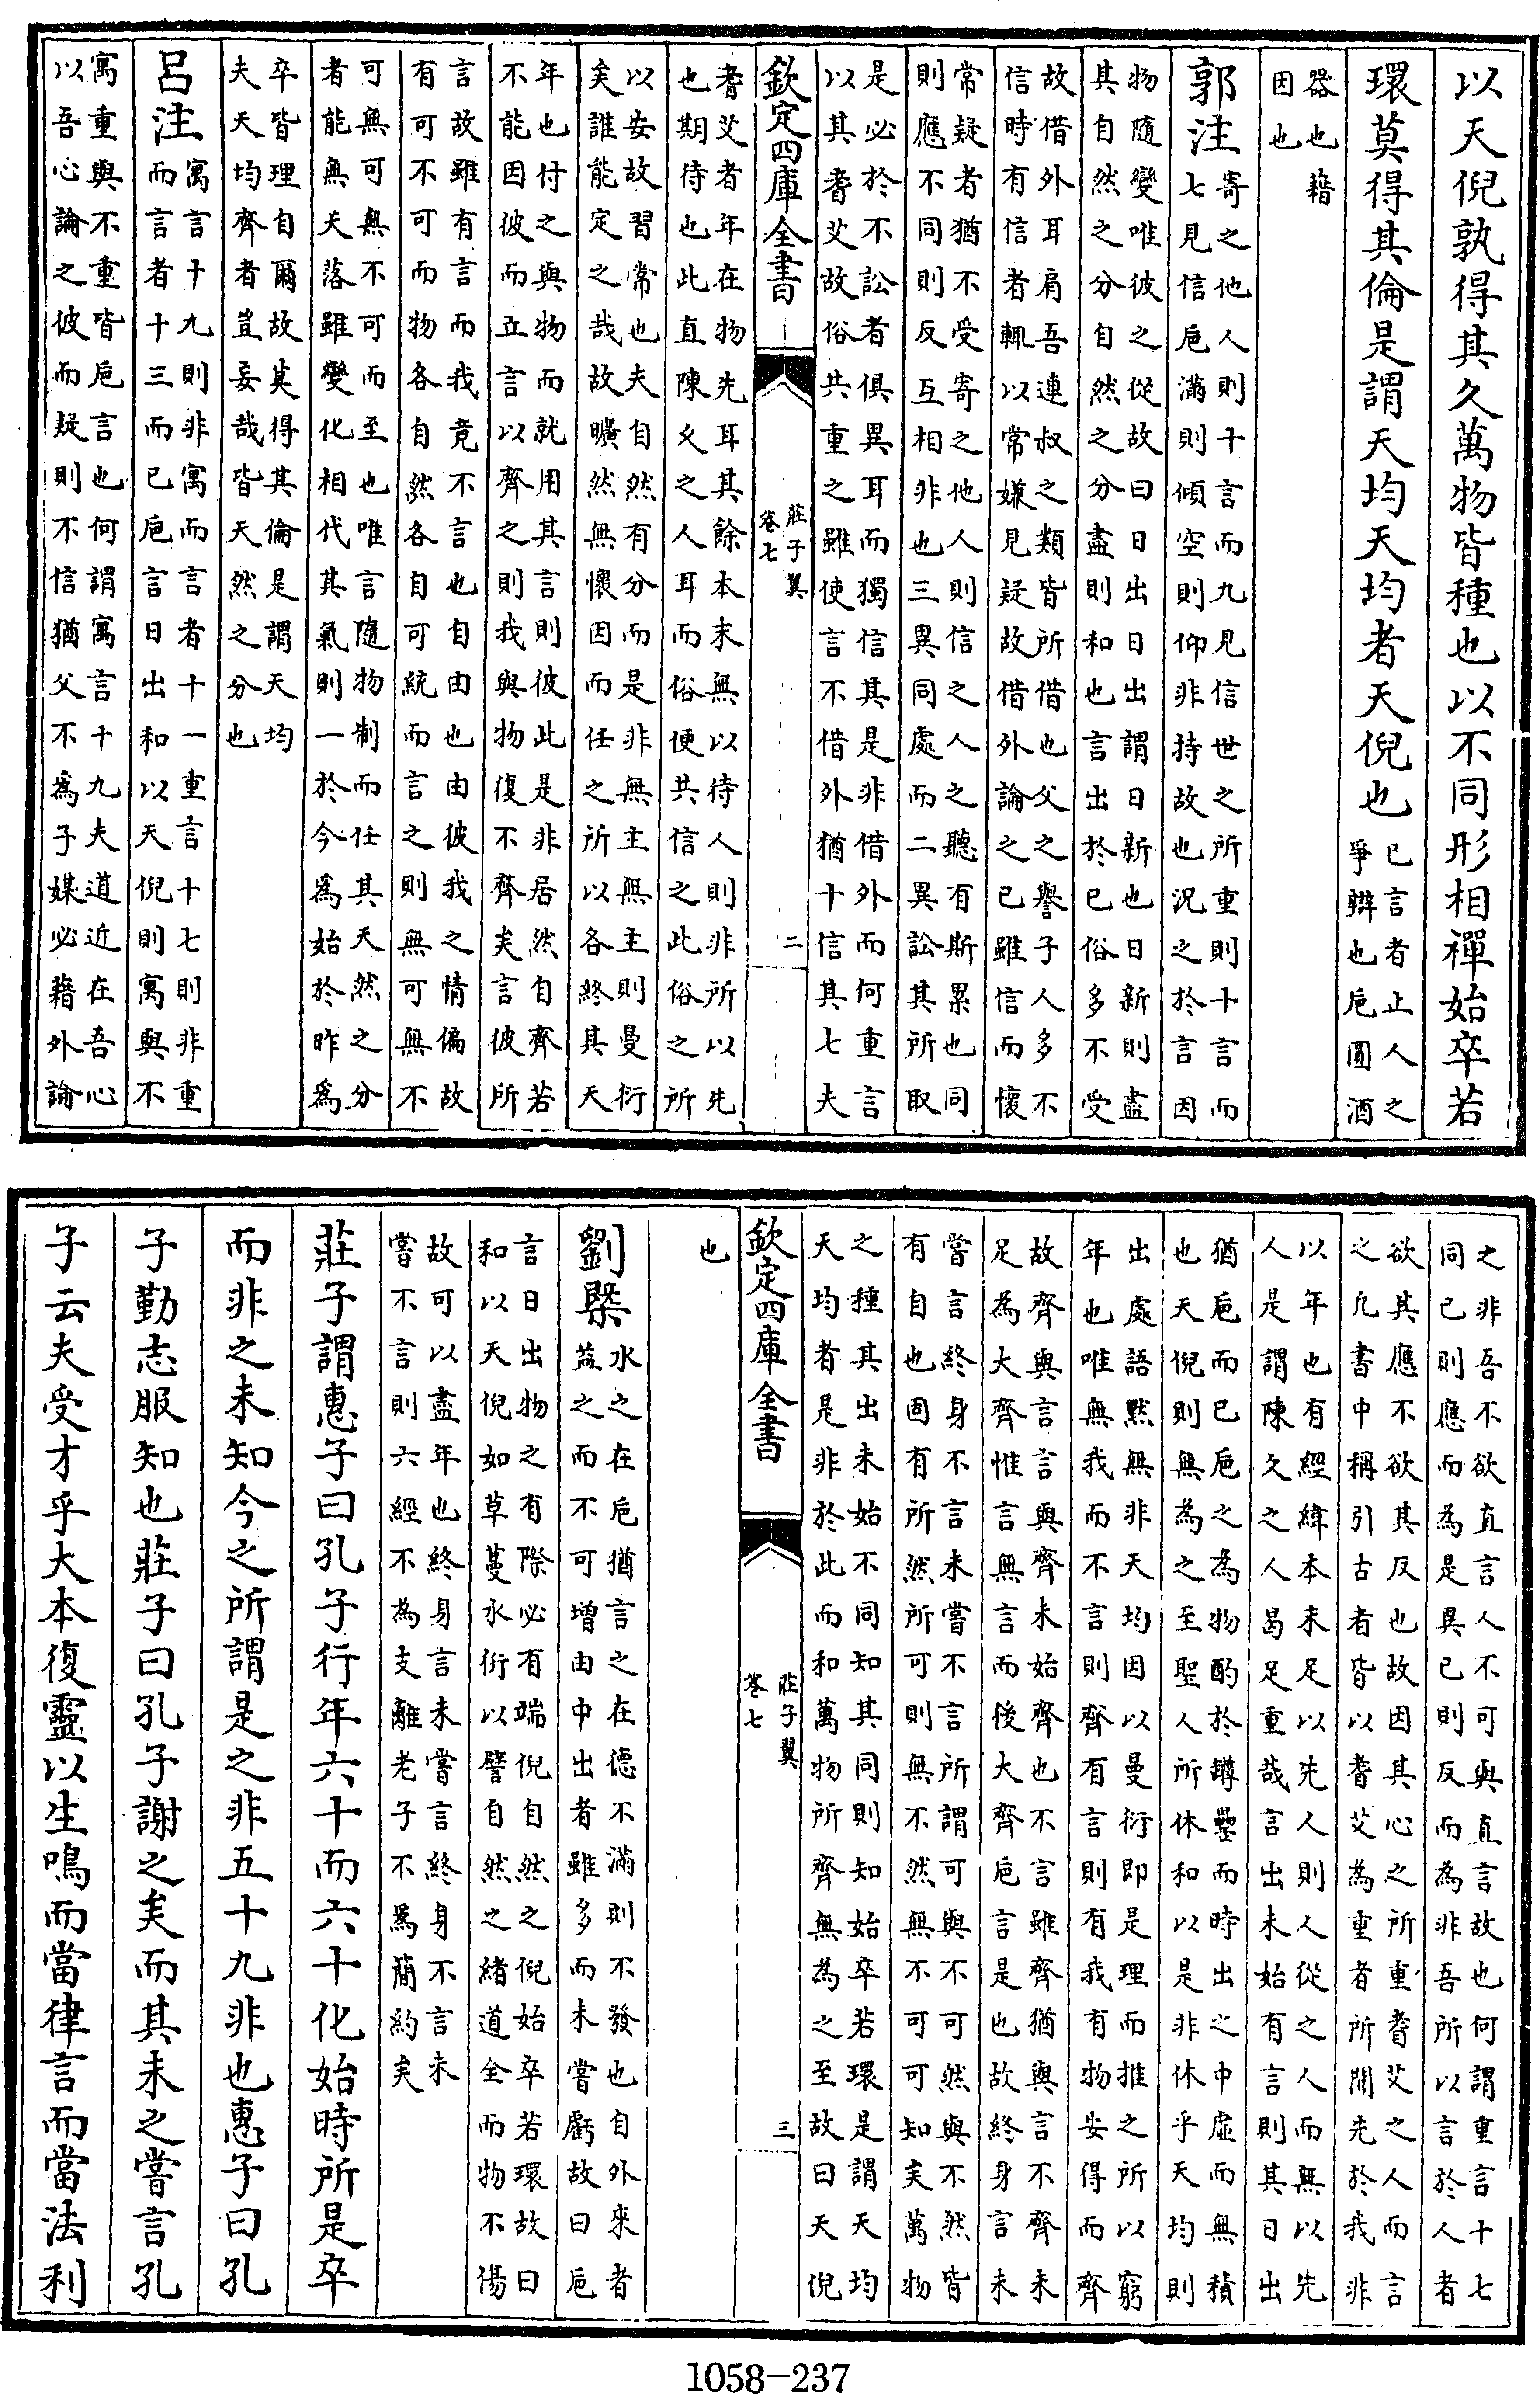 以天倪孰得其久萬物皆種也以不同形相禪始卒若
環莫得其倫是謂天均天均者天倪也
已言者止人之
爭辯也巵圓酒
器也藉
因也
郭注
寄之他人則十言而九見信世之所重則十言而
七見信巵滿則傾空則仰非持故也況之於言因
物隨變唯彼之從故曰日出日出謂日新也日新則盡
其自然之分自然之分盡則和也言出於已俗多不受
故借外耳肩吾連叔之類皆所借也父之譽子人多不
信時有信者輒以常嫌見疑故借外論之已雖信而懷
常疑者猶不受寄之他人則信之人之聽有斯累也同
則應不同則反互相非也三異同處而二異訟其所取
是必於不訟者俱異耳而獨信其是非借外而何重言
以其耆艾故俗共重之雖使言不借外猶十信其七夫
欽定四庫全書
莊子翼
卷七
二
耆艾者年在物先耳其餘本末無以待人則非所以先
也期待也此直陳久之人耳而俗便共信之此俗之所
以安故習常也夫自然有分而是非無主無主則曼衍
矣誰能定之哉故曠然無懷因而任之所以各終其天
年也付之與物而就用其言則彼此是非居然自齊若
不能因彼而立言以齊之則我與物復不齊矣言彼所
言故雖有言而我竟不言也自由也由彼我之情偏故
有可不可而物各自然各自可統而言之則無可無不
可無可無不可而至也唯言隨物制而任其天然之分
者能無夭落雖變化相代其氣則一於今爲始於昨爲
卒皆理自爾故莫得其倫是謂天均
夫天均齊者豈妄哉皆天然之分也
呂注
寓言十九則非寓而言者十一重言十七則非重
而言者十三而已巵言日出和以天倪則寓與不
寓重與不重皆巵言也何謂寓言十九夫道近在吾心
以吾心論之彼而疑則不信猶父不爲子媒必藉外論
之非吾不欲直言人不可與直言故也何謂重言十七
同已則應而為是異已則反而為非吾所以言於人者
欲其應不欲其反也故因其心之所重耆艾之人而言
之凡書中稱引古者皆以耆艾為重者所聞先於我非
以年也有經緯本末足以先人則人從之人而無以先
人是謂陳久之人曷足重哉言出未始有言則其日出
猶巵而已巵之為物酌於罇罍而時出之中虛而無積
也天倪則無為之至聖人所休和以是非休乎天均則
出處語黙無非天均因以曼衍即是理而推之所以窮
年也唯無我而不言則齊有言則有我有物安得而齊
故齊與言言與齊未始齊也不言雖齊猶與言不齊未
足為大齊惟言無言而後大齊巵言是也故終身言未
嘗言終身不言未嘗不言所謂可與不可然與不然皆
有自也固有所然所可則無不然無不可可知矣萬物
之種其出未始不同知其同則知始卒若環是謂天均
天均者是非於此而和萬物所齊無為之至故曰天倪
欽定四庫全書
莊子翼
卷七
三
也
劉槩
水之在巵猶言之在德不滿則不發也自外來者
蓋之而不可增由中出者雖多而未嘗虧故曰巵
言日出物之有際必有端倪自然之倪始卒若環故曰
和以天倪如草蔓水衍以譬自然之緒道全而物不傷
故可以盡年也終身言未嘗言終身不言未
嘗不言則六經不為支離老子不爲簡約矣
莊子謂惠子曰孔子行年六十而六十化始時所是卒
而非之未知今之所謂是之非五十九非也惠子曰孔
子勤志服知也莊子曰孔子謝之矣而其未之嘗言孔
子云夫受才乎大本復靈以生鳴而當律言而當法利
1058-237